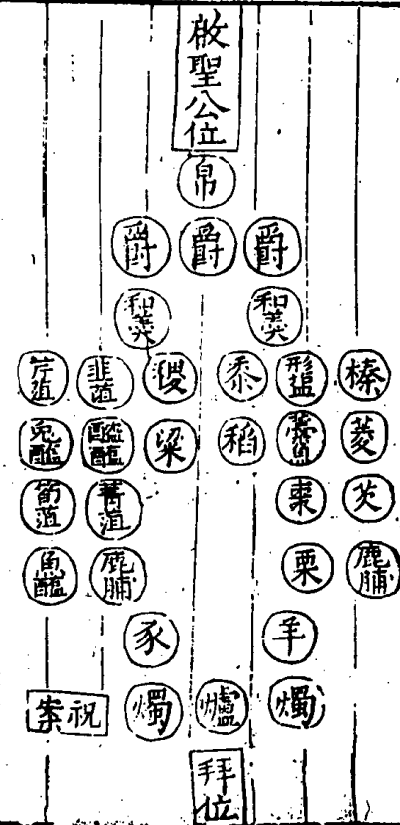 啟聖公位
帛
爵 爵 爵
和羹 和羹
榛 形塩 黍 稷 韭菹 芹菹
菱 稻 粱 醓醢 兔醢
芡 棗 菁菹 筍菹
鹿脯 栗 鹿脯 魚醢
羊 豕
燭 爐 燭 祝案
拜位